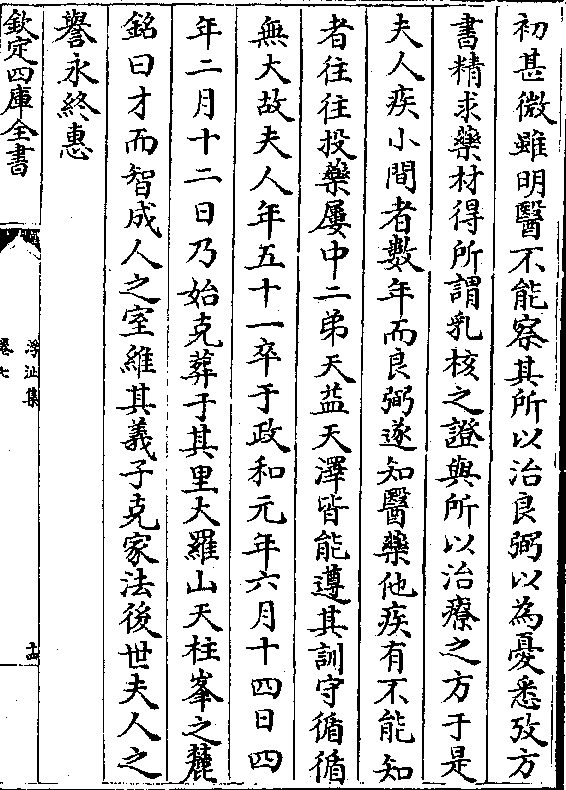 初甚微雖明醫不能察其所以治良弼以為憂悉攷方
書精求藥材得所謂乳核之證與所以治療之方于是
夫人疾小間者數年而良弼遂知醫藥他疾有不能知
者往往投藥屢中二弟天益天澤皆能遵其訓守循循
無大故夫人年五十一卒于政和元年六月十四日四
年二月十二日乃始克葬于其里大羅山天柱峯之麓
銘曰才而智成人之室維其義子克家法後世夫人之
譽永終惠
欽定四庫全書
浮沚集
卷七
十四